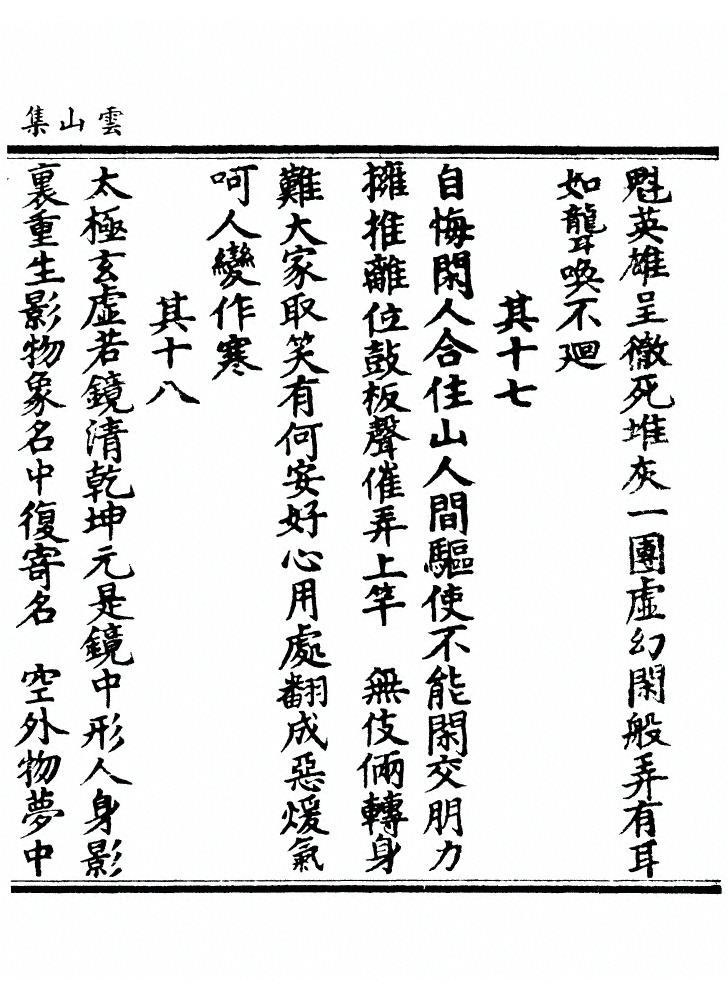 雲山集
魁英雄呈徹死堆灰一團虛幻閑般弄有耳
如聾喚不迴
其十七
自悔閑人合住山人間驅使不能閑交朋力
擁推離位鼓板聲催弄上竿　無伎倆轉身
難大家取笑有何安好心用處翻成惡煖氣
呵人變作寒
其十八
太極玄虛若鏡清乾坤元是鏡中形人身影
裏重生影物象名中復寄名　空外物夢中